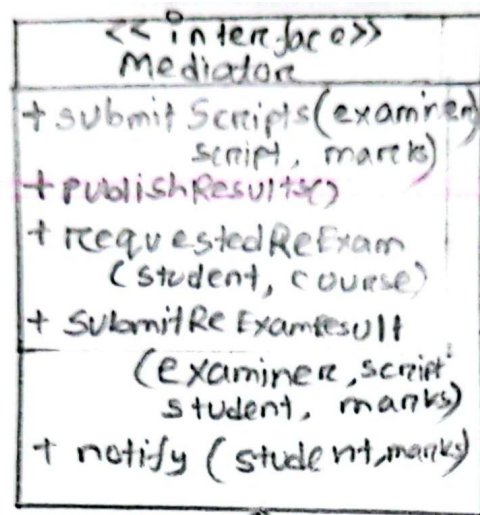 <<interface>>
Mediator
+ submitScripts(examiner,
script, marks)
+ publishResults()
+ requestedReExam
(student, course)
+ submitReExamResult
(examiner, script
student, marks)
+ notify (student, marks)